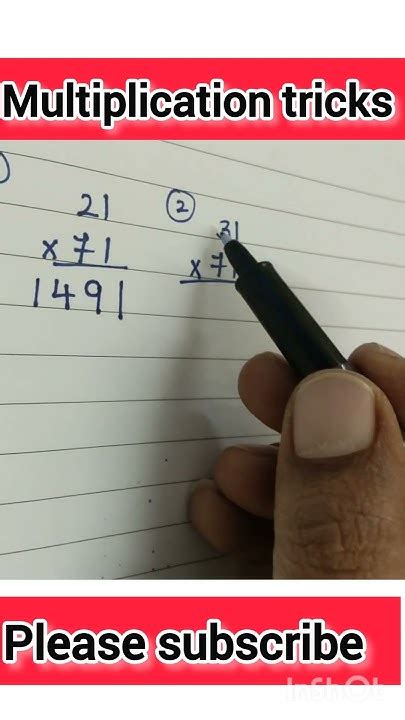 Multiplication tricks
)
21
x 71
1491
2
31
x 71
Please subscribe
InShot